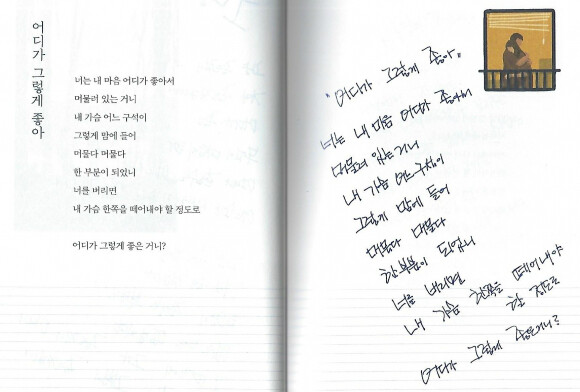 어디가 그렇게 좋아
너는 내 마음 어디가 좋아서
머물러 있는 거니
내 가슴 어느 구석이
그렇게 맘에 들어
머물다 머물다
한 부분이 되었니
너를 버리면
내 가슴 한쪽을 떼어내야 할 정도로
어디가 그렇게 좋은 거니?
"어디가 그렇게 좋아"
너는 내 마음 어디가 좋아서
머물러 있는거니
내 가슴 어느구석이
그렇게 맘에 들어
머물다 머물다
한부분이 되었니
너를 버리면
내 가슴 한쪽을 떼어내야
할 정도로
어디가 그렇게 좋은거니?